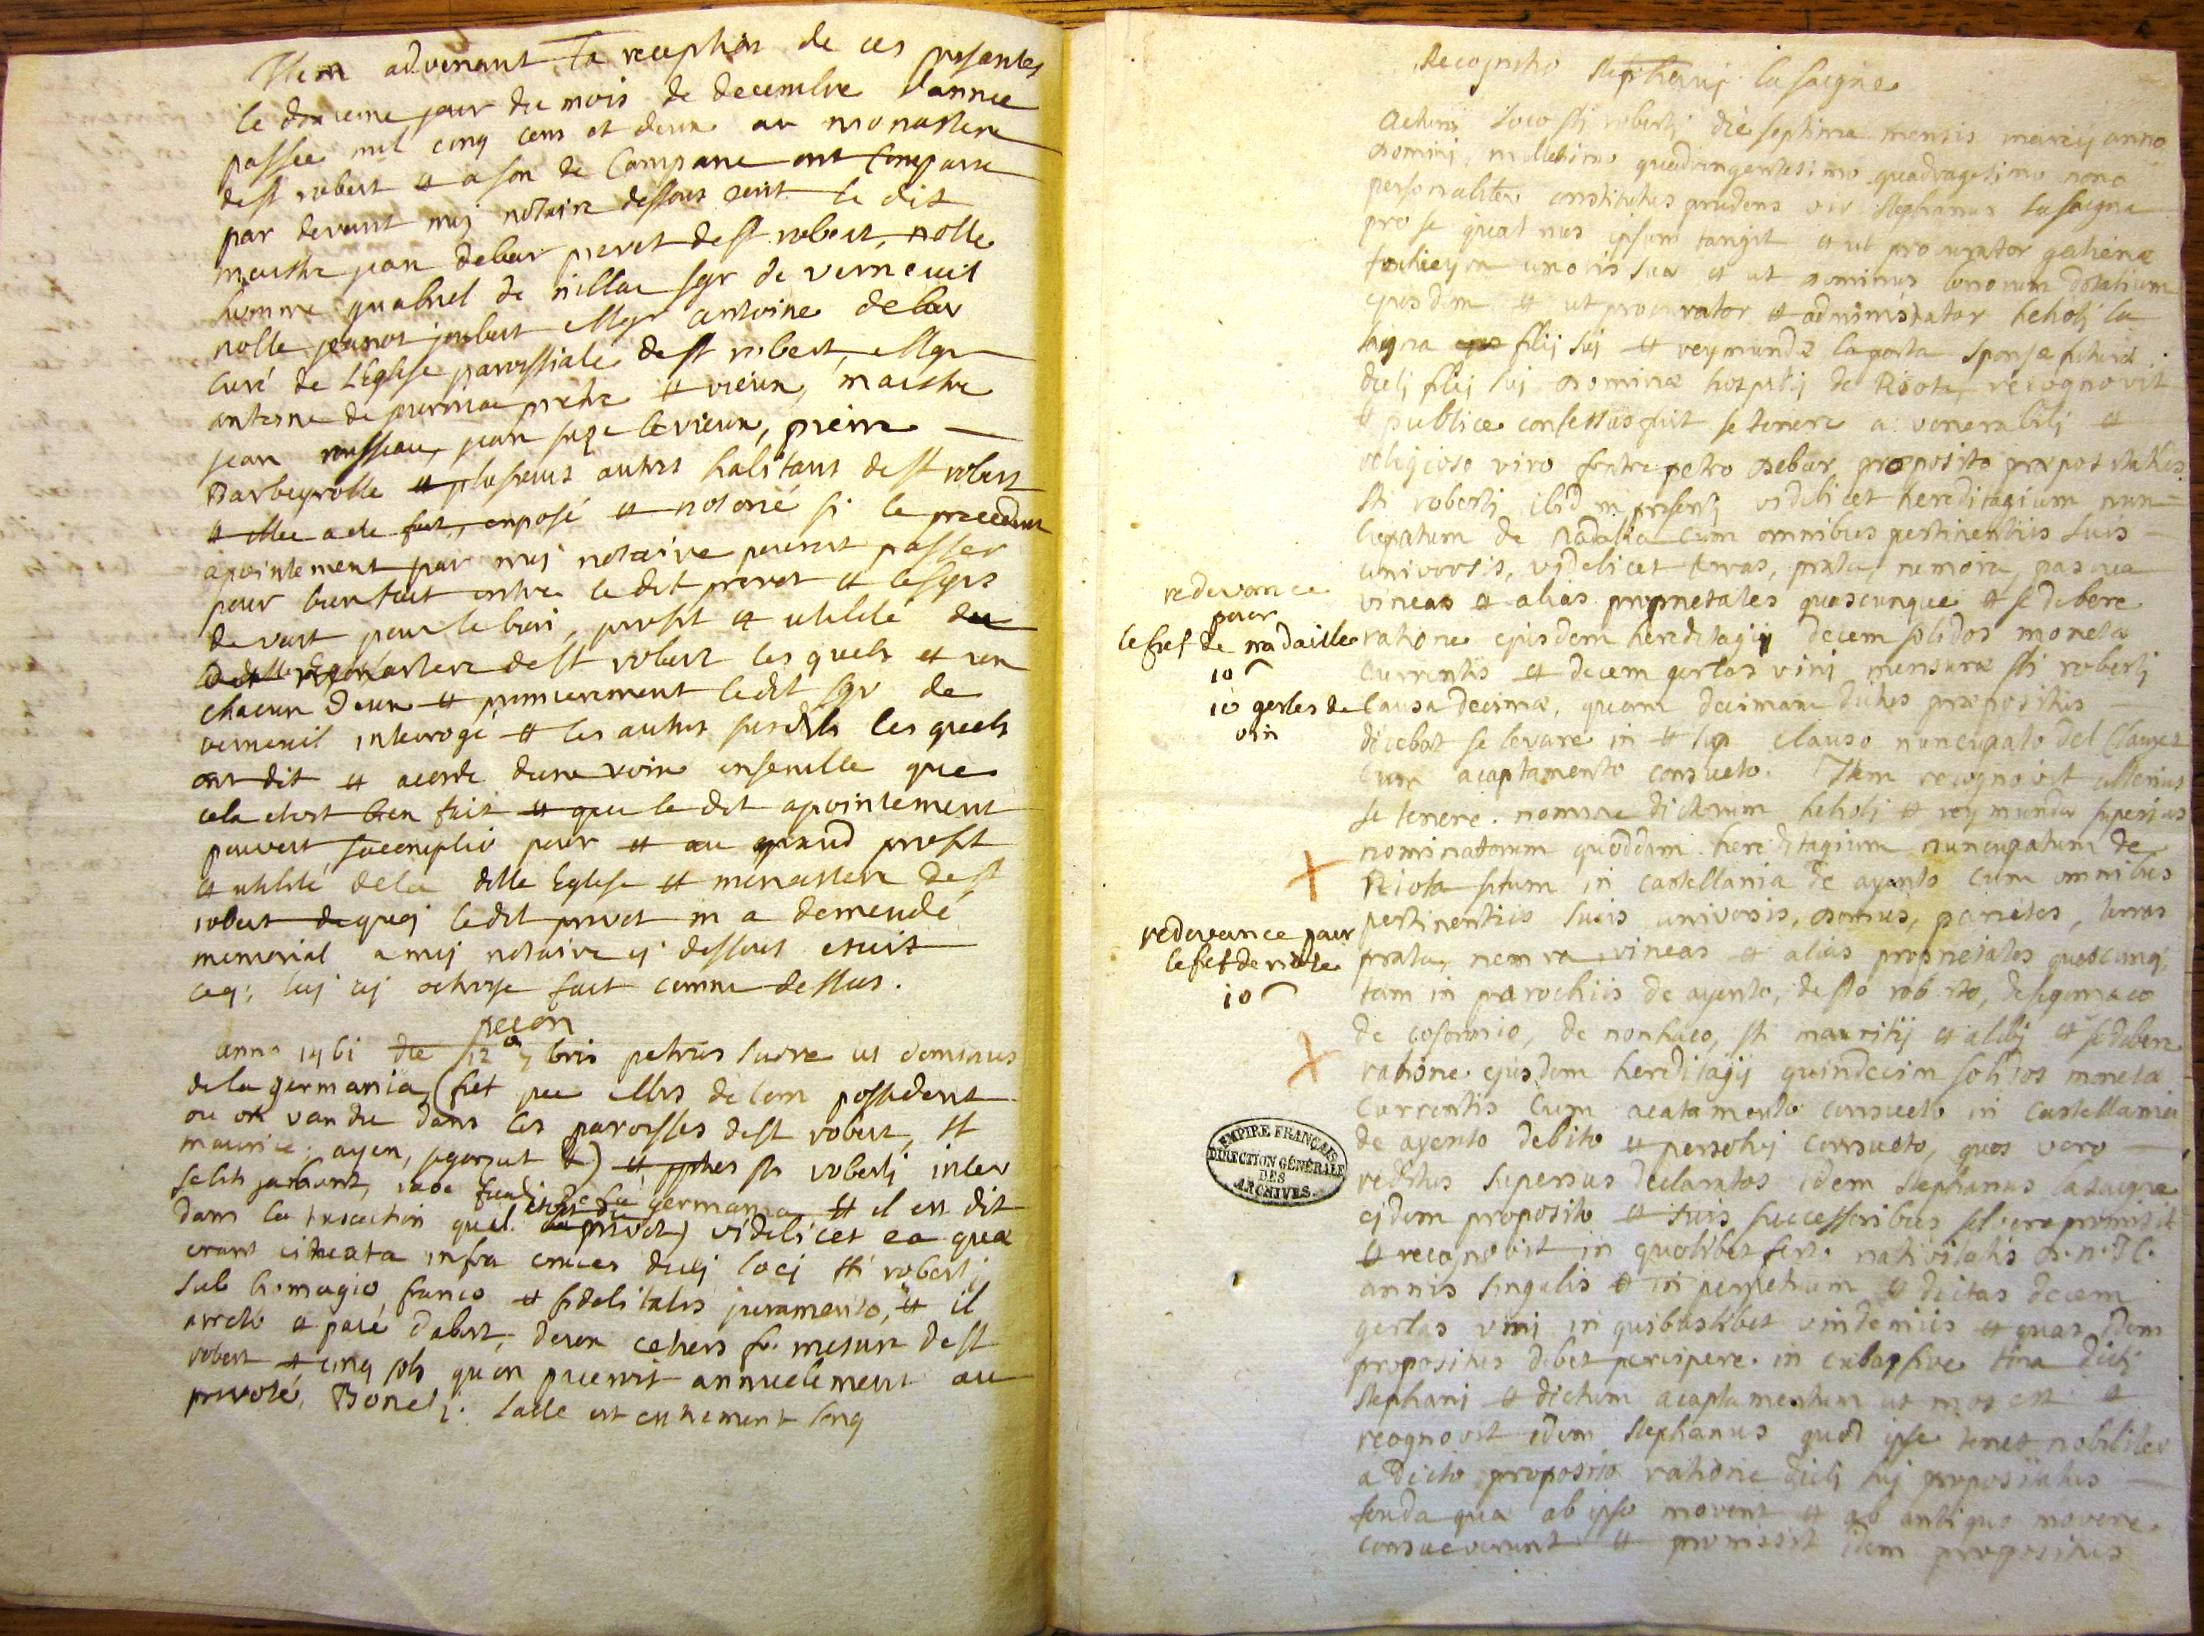 Item advenant la reception de ces presantes
le douzieme jour du mois de decembre l'annee
passee mil cinq cens et deux au monastere
de st robert et a son de Campane ont Comparu
par devant moi notaire dessous ecrit le dit
maistre jean debar prevot de st robert, noble
homme guabriel de sgr de verneuil
noble jeanot joubert Mgr antoine debar
curé de L'Eglise paroissiale de st robert, Mgr
antoine de prestre et vieux, maistre
jean rousseau, jean le vieux, pierre
Barbeyrolle et plusieurs autres habitans de st robert
et a ete exposé et notorié si le precedent
apointement par moi notaire pouvoit passer
pour bien fait entre ledit prevot et le sgrs
devant pour le bien, profit et utilité du
monastere de st robert les quels et un
chacun deux et premierement ledit sgr de
verneuil interogé et les autres susdits les quels
ont dit et acorde dune voix ensemble que
cela etoit bien fait et que le dit apointement
pouvoit saccomplir pour et au grand profit
et utilité de la ditte Eglise et monastere de st
robert de quoi ledit prevot m a demendé
memorial a moi notaire ci dessous ecrit
ceq; lui ai octroye fait comme dessus.
recon
anno 1461 die 12a 7bris petrus ut dominus
de la germania (fief que Mrs de possedent
ou ont vandu dans les paroisses de st robert, st
maurice, ayen, segonzat &) et sti roberti inter
germania et il est dit
dans la quil prevot) videlicet ea quae
erant situata infra cruces dicti loci sti roberti
sub homagio franco et fidelitatis juramento, et il
et payé dabort, deux cetiers fr. mesure de st
robert et cinq sols quon paieroit annuelement au
prevoté, Boneti. lacte est extremement long
Recognitio stephani la saigne
Actum loco sti roberti die septima mensis marcij anno
domini, millesimo quadringentesimo quadragesimo nono
personaliter constitutus prudens vir stephanus lasaigna
pro se quatenus ipsum tangit et ut procurator galienæ
uxoris suæ et ut dominus bonorum dotalium
ejusdem et ut procurator et administrator heliotj la
saigna filij suj et reymundæ laporta sponsæ futuræ
dicti filij suj dominæ hospitij de Riota, recognovit
et publice confessus fuit se tenere a venerabilj et
religioso viro fratre petro debar præposito præpositatus
sti robertj ibidem presentj videlicet hereditagium nun=
cupatum de Nadalia cum omnibus pertinentiis suis
universis, videlicet terras, prata, nemora, pascua
vineas et alias proprietates quascunque et se debere
redevance
pour
le fief de nadaille
10
10 gerles de
vin
ratione ejusdem hereditagij decem solidos monetæ
currentis et decem gerlas vini mensuræ sti robertj
causa decimæ, quam decimam dictus præpositus
dicebat se levare in et sup clauso nuncupato del Clauzel
cum acaptamento consueto. Item recognovit ulterius
se tenere nomine dictorum heliotj et reymundæ superius
nominatorum quoddam hereditagium nuncupatum de
Riota situm in castellania de ayento cum omnibus
pertinentiis suis universis, domus, parietes, terras
redevance pour
le fief de riote
10
prata, nemora, vineas et alias proprietates quascunq;
tam in parochiis de ayento, de sto roberto, de segonzaco
de coforsio, de nonhaco, sti mauritij et alibj et se debere
ratione ejusdem hereditagij quindecim solidos monetæ
currentis cum acatamento consueto in castellania
de ayento debito et persolvj consueto, quos vero
reditus superius declaratos idem stephanus lasaigna
ejdem preposito et suis successoribus solvere promisit
et recognovit in quolibet festo nativitatis d. n. J. C.
annis singulis et in perpetuum et dictas decem
gerlas vini in quibuslibet vindemiis et quas idem
prepositus debet percipere in cuba sive tina dictj
stephani et dictum acaptamentum ut mos est et
recognovit idem stephanus quod ipse tenet nobiliter
a dicto preposito ratione dicti suj prepositatus
feuda quæ ab ipso movent et ab antiquo movere
consueverunt et promisit idem prepositus
EMPIRE FRANÇAIS
DIRECTION GÉNÉRALE
DES
ARCHIVES.